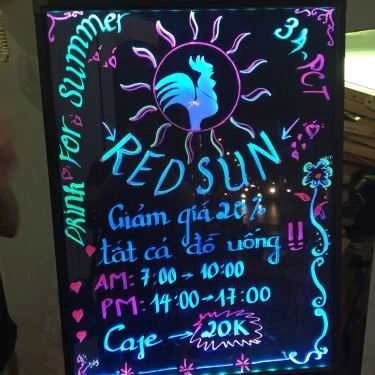 Drink For Summer
34 PCT
RED SUN
Giảm giá 20%
tất cả đồ uống !!
AM: 7:00 → 10:00
PM: 14:00 → 17:00
Cafe → 20K